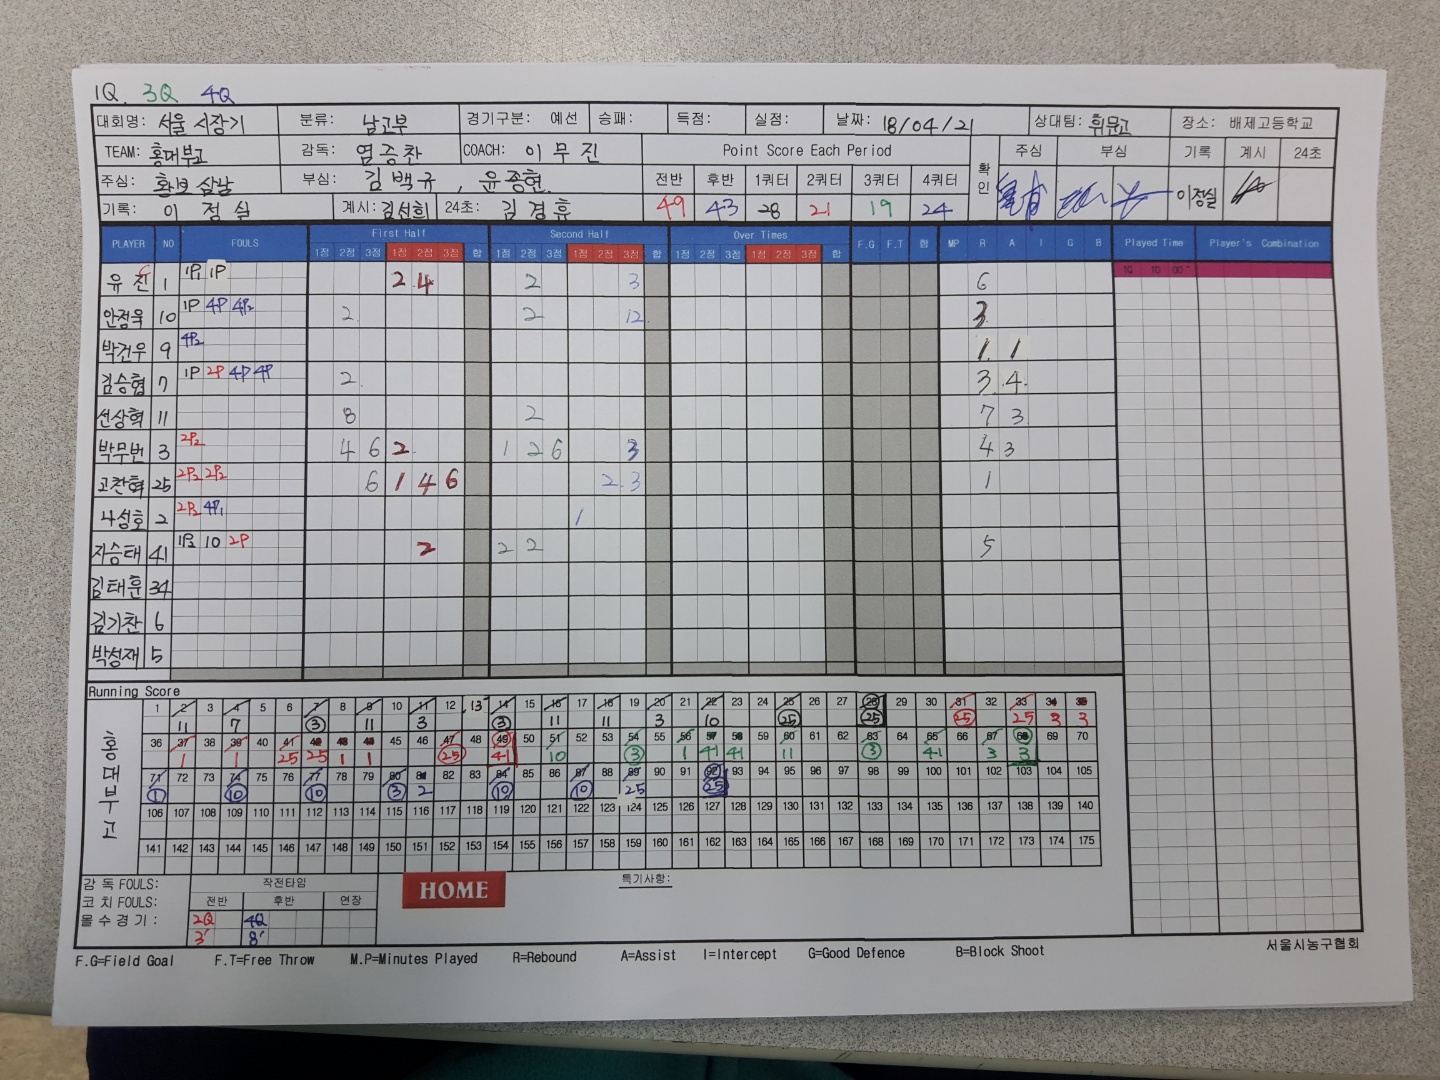 1Q. 3Q 4Q
대회명: 서울 시장기 분류: 남고부 경기구분: 예선 승패: 득점: 실점: 날짜: 18/04/21 상대팀: 휘문고 장소: 배재고등학교
TEAM: 홍대부고 감독: 염증찬 COACH: 이무진 Point Score Each Period 확인 주심 부심 기록 계시 24초
주심: 황보삼남 부심: 김백규, 윤종현. 전반 후반 1쿼터 2쿼터 3쿼터 4쿼터
기록: 이정실 계시: 김선희 24초: 김경휴 49 43 28 21 19 24 이정실
PLAYER NO FOULS First Half Second Half Over Times F.G F.T 합 MP R A I G B Played Time Player's Combination
1점 2점 3점 1점 2점 3점 합 1점 2점 3점 1점 2점 3점 합 1점 2점 3점 1점 2점 3점 합
1Q 10 00"
유진 C 1 1P1 1P 2 4 2 3 6
안정욱 10 1P 4P 4P2 2 2 12 3
박건우 9 4P2 1 1
김승협 7 1P 2P 4P 4P 2 3 4
선상혁 11 8 2 7 3
박무빈 3 2P2 4 6 2 1 2 6 3 4 3
고찬혁 25 2P2 2P2 6 1 4 6 2 3 1
나성호 2 2P2 4P1 1
지승태 41 1P2 10 2P 2 2 2 5
김태훈 34
김기찬 6
박성재 5
Running Score
홍대부고
1 2 3 4 5 6 7 8 9 10 11 12 13 14 15 16 17 18 19 20 21 22 23 24 25 26 27 28 29 30 31 32 33 34 35
11 7 3 11 3 3 11 11 3 10 25 25 25 25 3 3
36 37 38 39 40 41 42 43 44 45 46 47 48 49 50 51 52 53 54 55 56 57 58 59 60 61 62 63 64 65 66 67 68 69 70
1 1 25 25 1 1 25 41 10 3 1 41 41 11 3 41 3 3
71 72 73 74 75 76 77 78 79 80 81 82 83 84 85 86 87 88 89 90 91 92 93 94 95 96 97 98 99 100 101 102 103 104 105
1 10 10 3 2 10 10 25 25
106 107 108 109 110 111 112 113 114 115 116 117 118 119 120 121 122 123 124 125 126 127 128 129 130 131 132 133 134 135 136 137 138 139 140
141 142 143 144 145 146 147 148 149 150 151 152 153 154 155 156 157 158 159 160 161 162 163 164 165 166 167 168 169 170 171 172 173 174 175
감독 FOULS: 작전타임 HOME 특기사항:
코치 FOULS: 전반 후반 연장
몰수경기: 2Q 4Q
3' 8'
서울시농구협회
F.G=Field Goal F.T=Free Throw M.P=Minutes Played R=Rebound A=Assist I=Intercept G=Good Defence B=Block Shoot